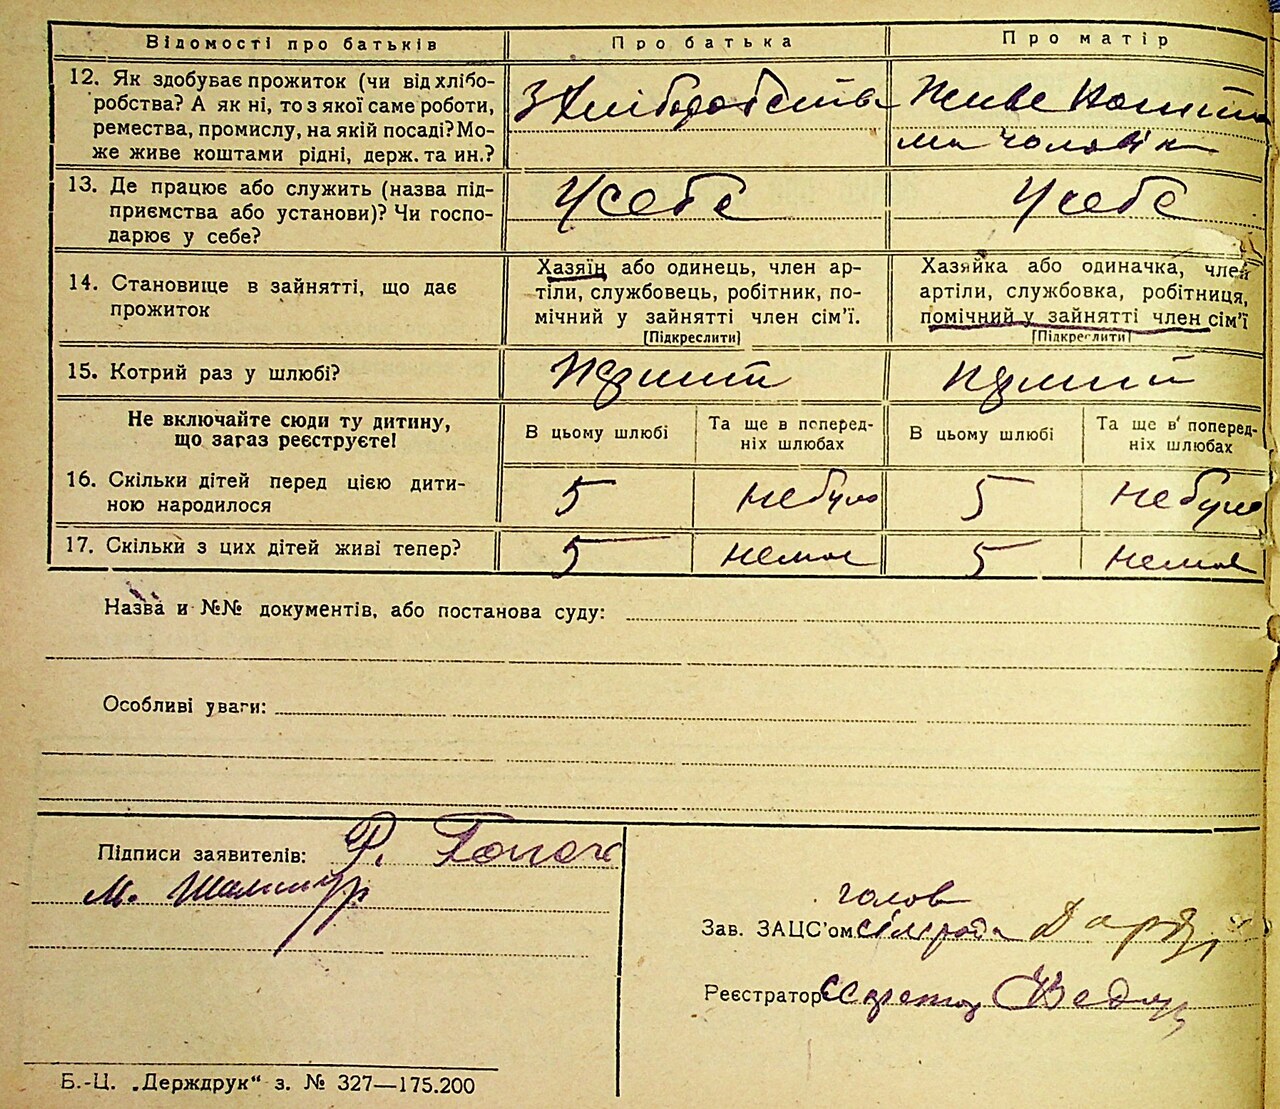 Відомості про батьків Про батька Про матір
12. Як здобуває прожиток (чи від хлібо-
робства? А як ні, то з якої саме роботи,
ремества, промислу, на якій посаді? Мо-
же живе коштами рідні, держ. та ин.?
З хліборобства
Живе кошта
ми чоловіка
13. Де працює або служить (назва під-
приємства або установи)? Чи госпо-
дарює у себе?
У себе
У себе
14. Становище в зайнятті, що дає
прожиток
Хазяїн або одинець, член ар-
тіли, службовець, робітник, по-
мічний у зайнятті член сім'ї.
[Підкреслити]
Хазяйка або одиначка, член
артіли, службовка, робітниця,
помічний у зайнятті член сім'ї
[Підкреслити]
15. Котрий раз у шлюбі?
Перший
Перший
Не включайте сюди ту дитину,
що загаз реєструєте!
В цьому шлюбі
Та ще в поперед-
ніх шлюбах
В цьому шлюбі
Та ще в поперед-
ніх шлюбах
16. Скільки дітей перед цією дити-
ною народилося
5 небуло 5 небуло
17. Скільки з цих дітей живі тепер?
5 немає 5 немає
Назва и №№ документів, або постанова суду:
Особливі уваги:
Підписи заявителів: Р.
М.
голов
Зав. ЗАЦС'ом сільради
Реєстратор Секретар
Б.-Ц. „Держдрук“ з. № 327—175.200